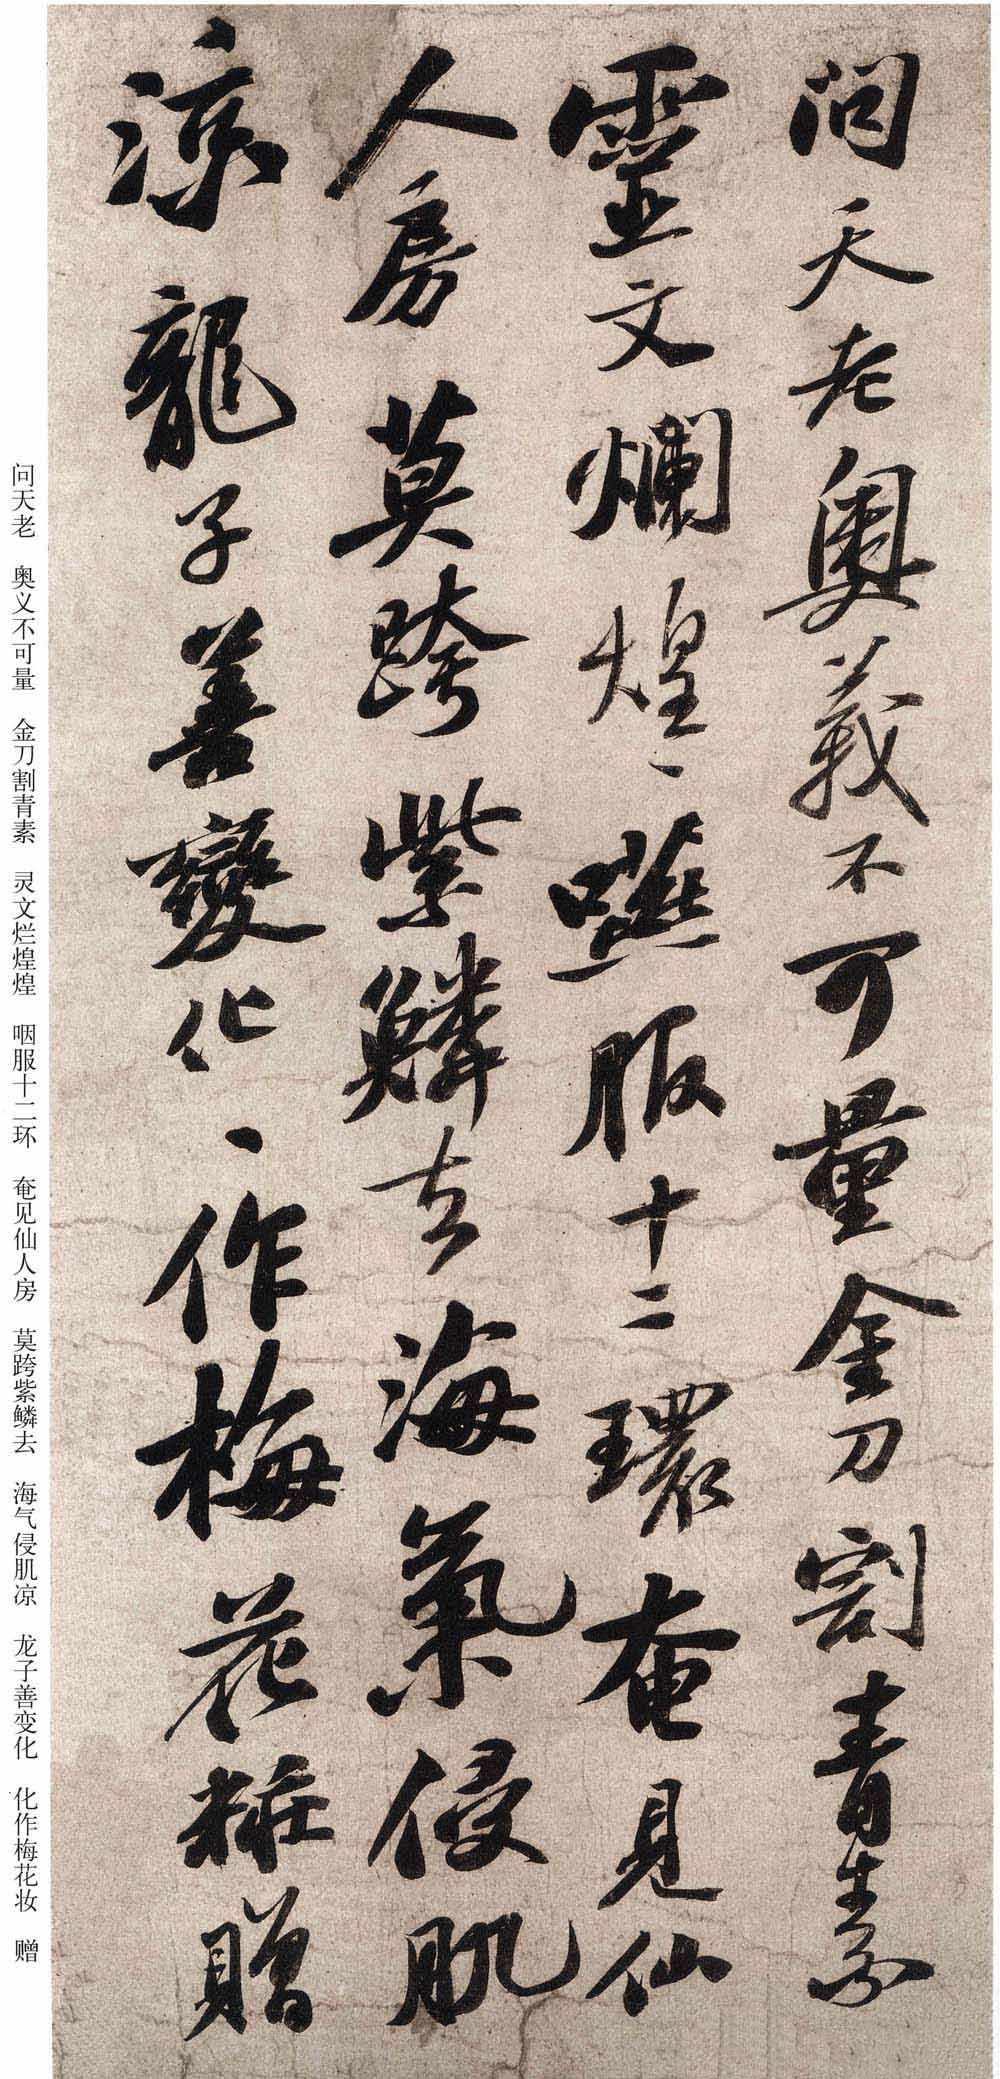 问天老奥義不可量金刀割青素
靈文爛煌、嚥服十二環奄見仙
人房莫跨紫鱗去海氣侵肌
涼龍子善變化、作梅花粧贈
问天老　奥义不可量　金刀割青素　灵文烂煌煌　咽服十二环　奄见仙人房　莫跨紫鳞去　海气侵肌凉　龙子善变化　化作梅花妆　赠